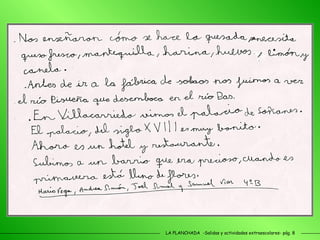 . Nos enseñaron cómo se hace la quesada, necesita
queso fresco, mantequilla, harina, huevos, limón, y
canela.
. Antes de ir a la fábrica de sobaos nos fuimos a ver
el río Pisueña que desemboca en el río Pas.
. En Villacarriedo vimos el palacio de Soñanes.
El palacio, del siglo XVIII es muy bonito.
Ahora es un hotel y restaurante.
Subimos a un barrio que era precioso, cuando es
primavera está lleno de flores.
Mario Vega, Andrea Simón, Joel y Samuel 4ºB
LA PLANCHADA -Salidas y actividades extraescolares- pág. 8